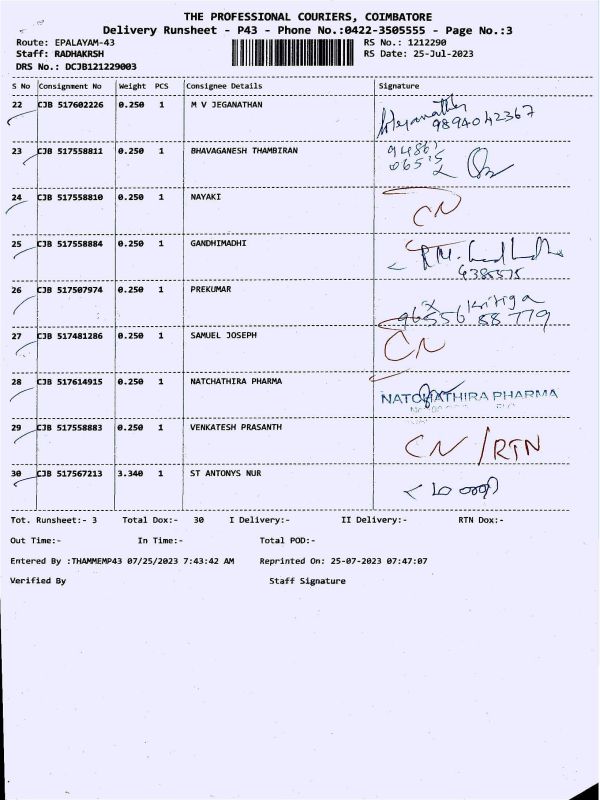 THE PROFESSIONAL COURIERS, COIMBATORE
Delivery Runsheet - P43 - Phone No.:0422-3505555 - Page No.:3
Route: EPALAYAM-43 RS No.: 1212290
Staff: RADHAKRSH RS Date: 25-Jul-2023
DRS No.: DCJB121229003
S No Consignment No Weight PCS Consignee Details Signature
22 CJB 517602226 0.250 1 M V JEGANATHAN
9894042367
23 CJB 517558811 0.250 1 BHAVAGANESH THAMBIRAN
24 CJB 517558810 0.250 1 NAYAKI CN
25 CJB 517558884 0.250 1 GANDHIMADHI
26 CJB 517507974 0.250 1 PREKUMAR
27 CJB 517481286 0.250 1 SAMUEL JOSEPH CN
28 CJB 517614915 0.250 1 NATCHATHIRA PHARMA
NATCHATHIRA PHARMA
29 CJB 517558883 0.250 1 VENKATESH PRASANTH CN/RTN
30 CJB 517567213 3.340 1 ST ANTONYS NUR
Tot. Runsheet:- 3 Total Dox:- 30 I Delivery:- II Delivery:- RTN Dox:-
Out Time:- In Time:- Total POD:-
Entered By :THAMMEMP43 07/25/2023 7:43:42 AM Reprinted On: 25-07-2023 07:47:07
Verified By Staff Signature